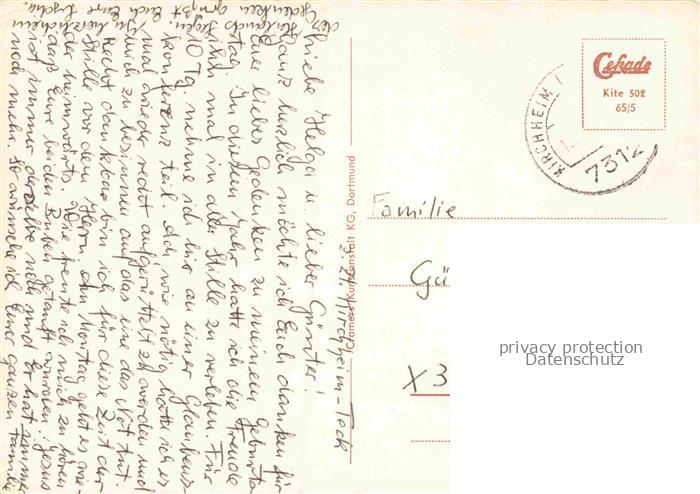 z. Zt. Kirchheim-Teck
Liebe Helga u. lieber Günter!
Ganz herzlich möchte ich Euch danken für
Euer liebes Gedenken zu meinem Geburts-
tag. In diesem Jahr hatte ich die Freude
ihn mal in aller Stille zu verleben. Für
10 Tg. nehme ich hier an einer Glaubens-
konferenz teil. Ach, wie nötig hatte ich es
mal wieder recht aufgerüttelt zu werden und
mich zu besinnen auf das eine das Not tut.
Recht dankbar bin ich für diese Zeit der
Stille vor dem Herrn. Am Montag geht es wie-
der heimwärts. Wie freute ich mich zu hören
daß Eure beiden Buben getauft wurden! Jesus
ist immer derselbe noch und Er hat immer
noch mehr. So wünsche ich Eurer ganzen Familie
des Heilands Segen. In herzlichem
Gedenken grüßt Euch Eure
Cramers Kunstanstalt KG, Dortmund
Cekade
Kite 502
65/5
KIRCHHEIM
7312
Familie
Gü
X3
privacy protection
Datenschutz